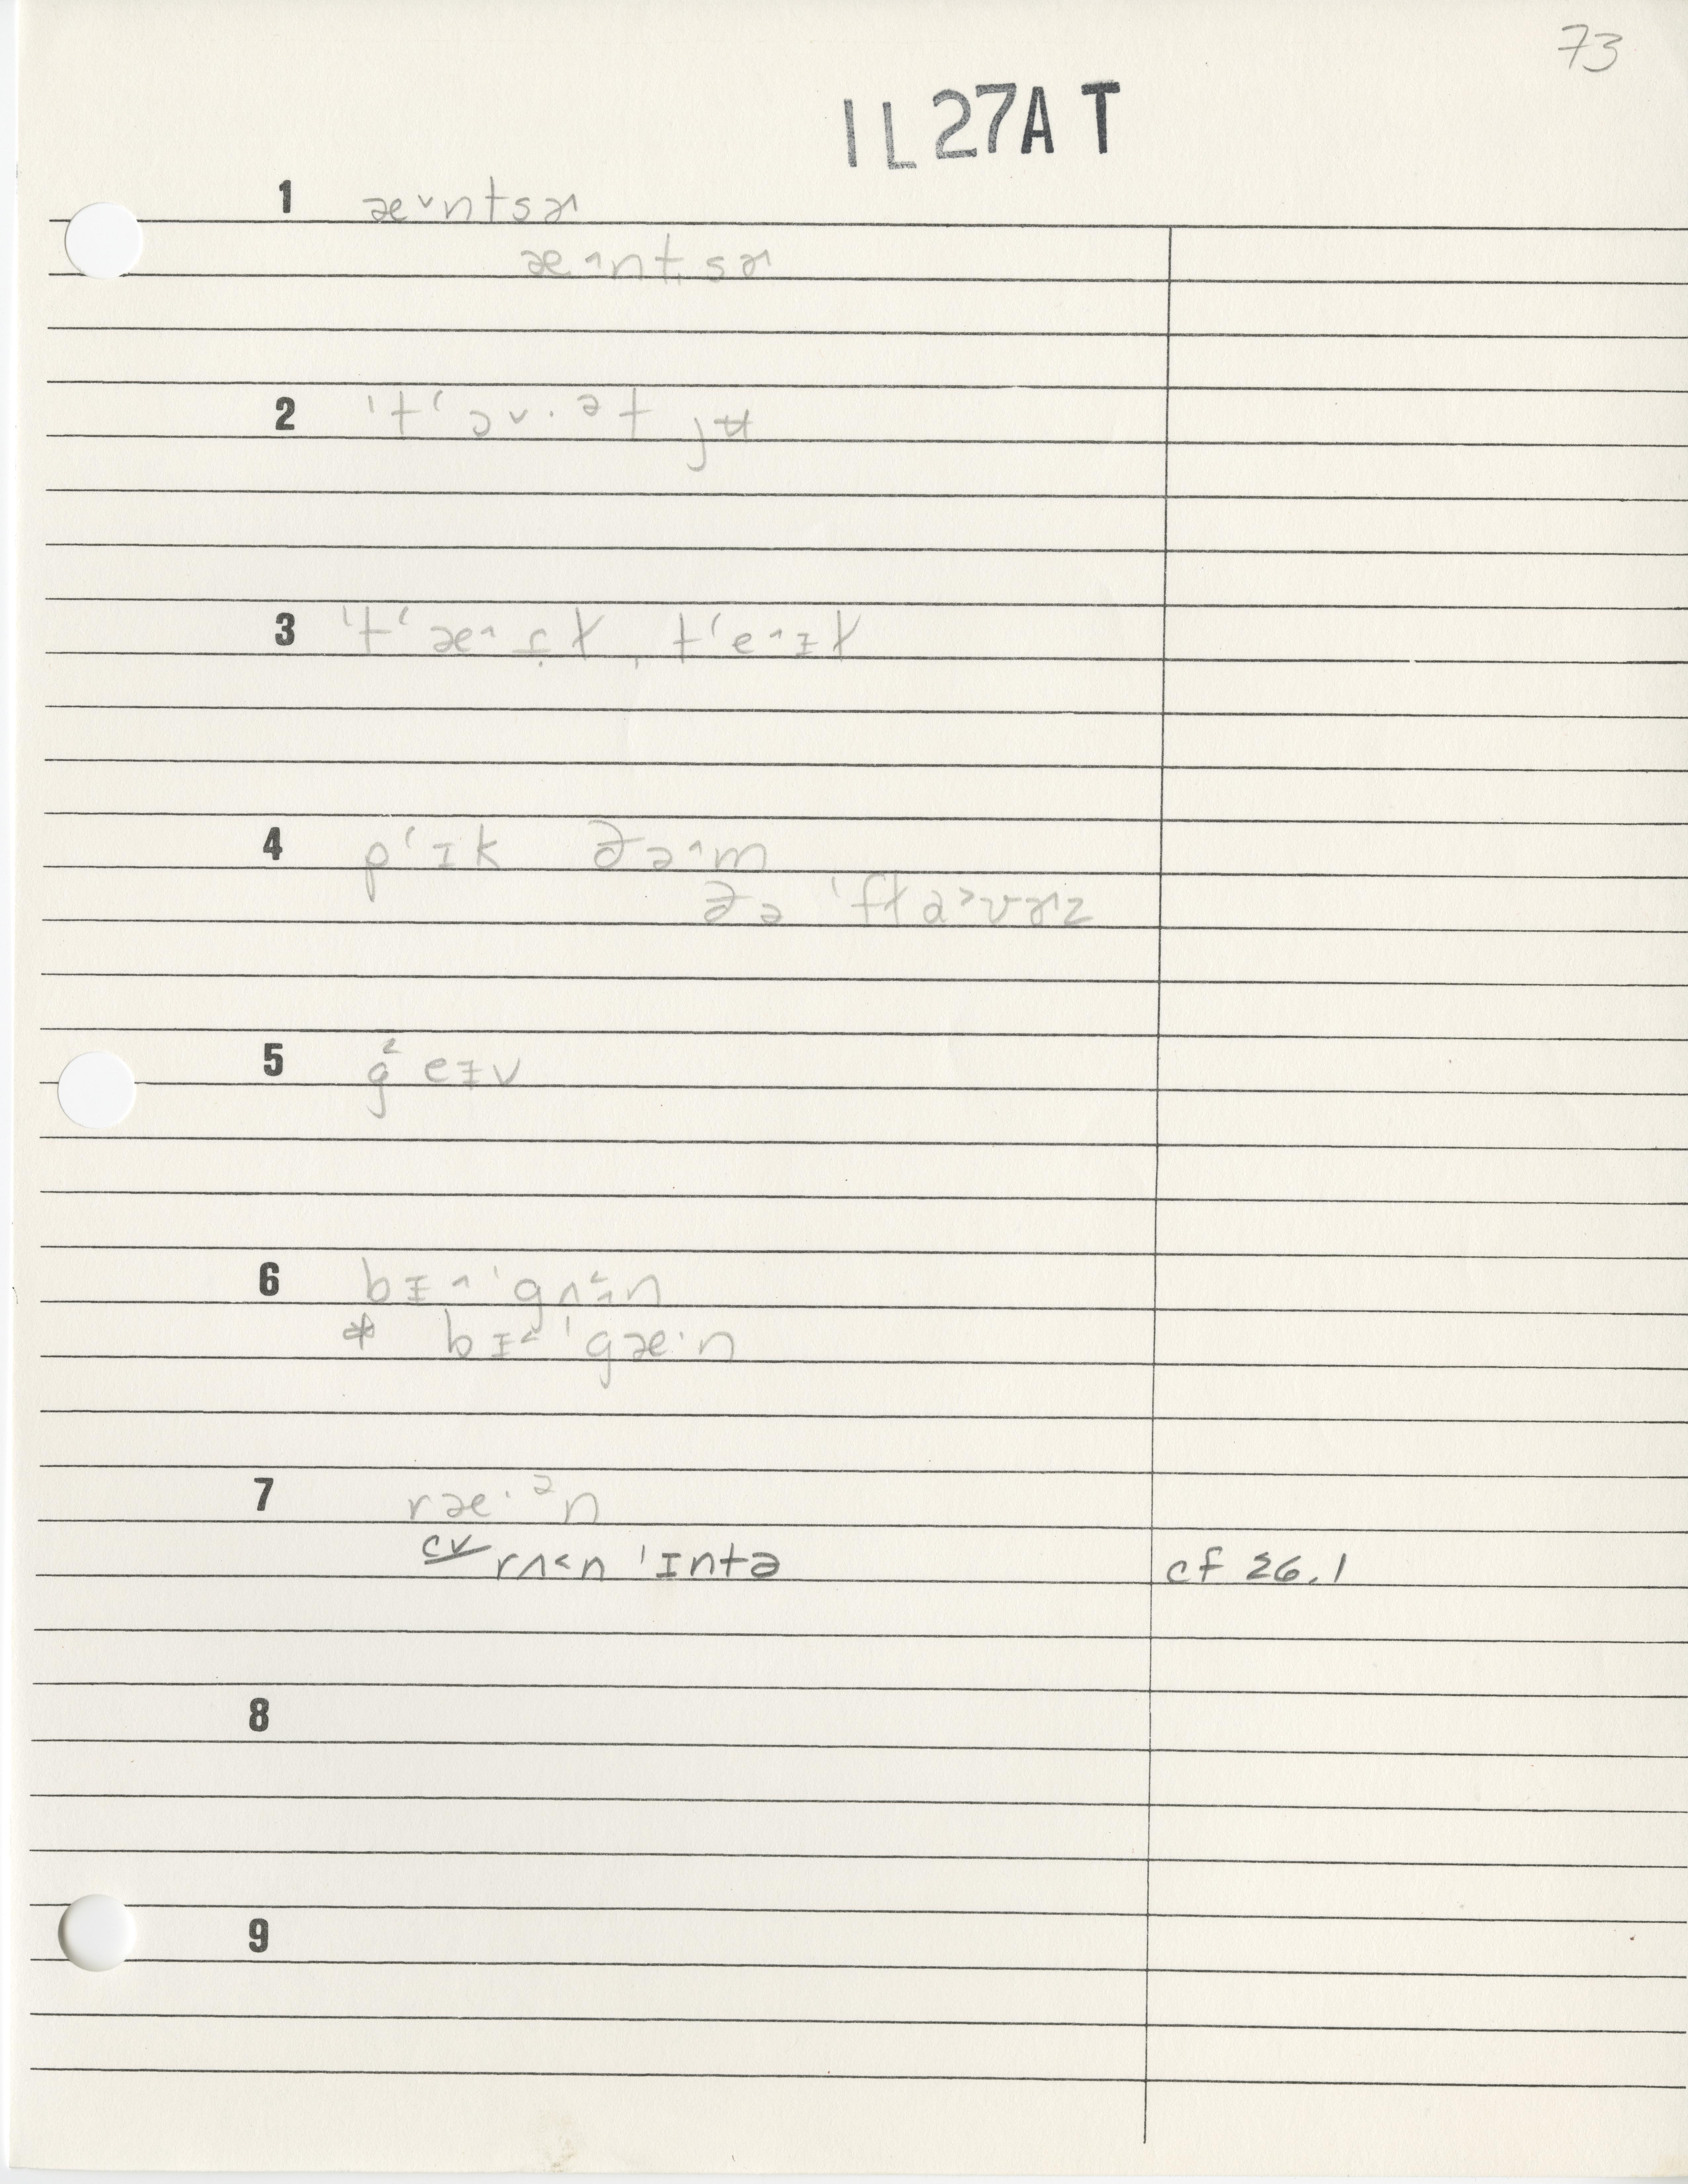 73
IL27A T
1 æ˅ntsɚ
æ˄nt̬sɚ
2 ˈtʻɔ˅·ət jʉ
3 ˈtʻæ˄ɪ̣ɫ, tʻe˄ɪɫ
4 pʻɪk ðə˄m
ðə ˈfɫɑ˃vɚz
5 gᶻeɪv
6 bɪ˄ˈgʌ˂n
* bɪ˂ˈgæ·n
7 ræ·ᵊn
cv rʌ˂n ˈɪntə cf 26.1
8
9